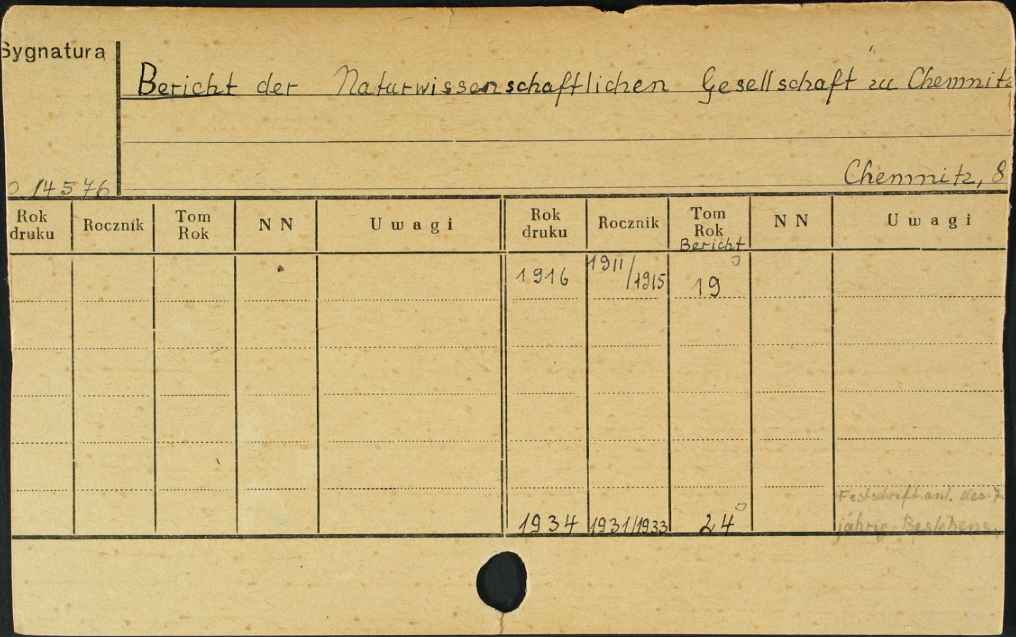 Sygnatura
Bericht der Naturwissenschaftlichen Gesellschaft zu Chemnitz
Chemnitz, 8
14576
Rok druku Rocznik Tom Rok N N Uwagi Rok druku Rocznik Tom Rok N N Uwagi
Bericht
1916 1911/1915 19
Festschrift anl. des 7
1934 1931/1933 24 jährig. Bestehens.